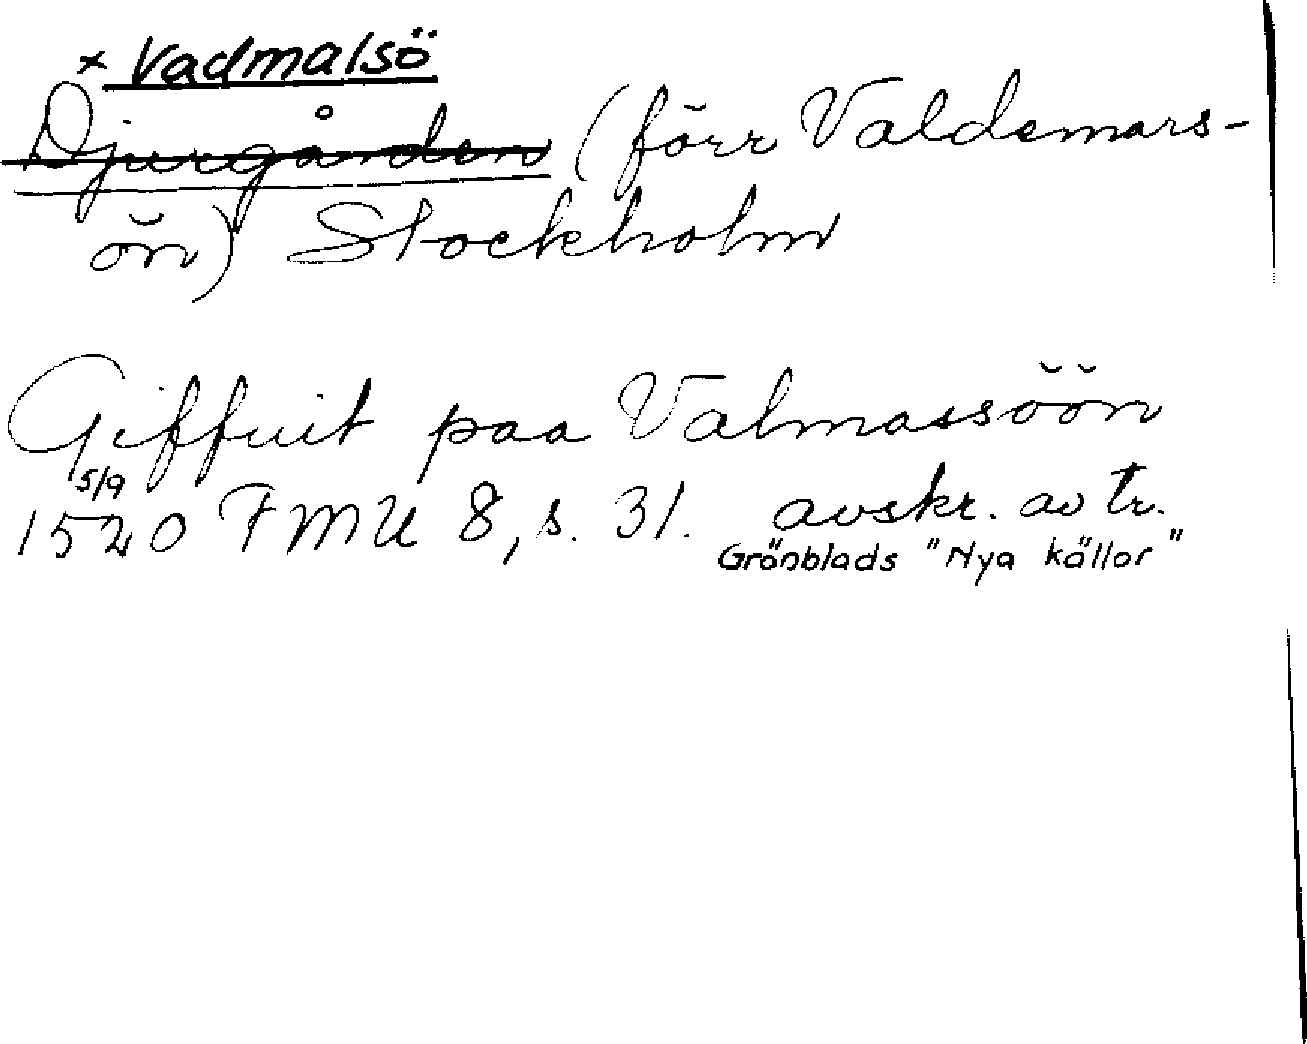 × Vadmalsö
Djurgården (förr Valdemars-
ön) Stockholm
Giffuit paa Valmassöön
5/9
1520 FMU 8, s. 31. avskr. av tr.
Grönblads "Nya källor"